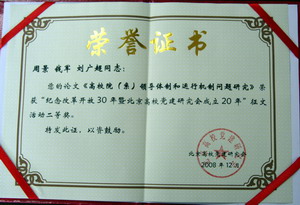 荣誉证书
周景 钱军 刘广超同志：
您的论文《高校院（系）领导体制和运行机制问题研究》荣
获“纪念改革开放30年暨北京高校党建研究会成立20年”征文
活动二等奖。
特发此证，以资鼓励。
北京高校党建研究会
2008年12月